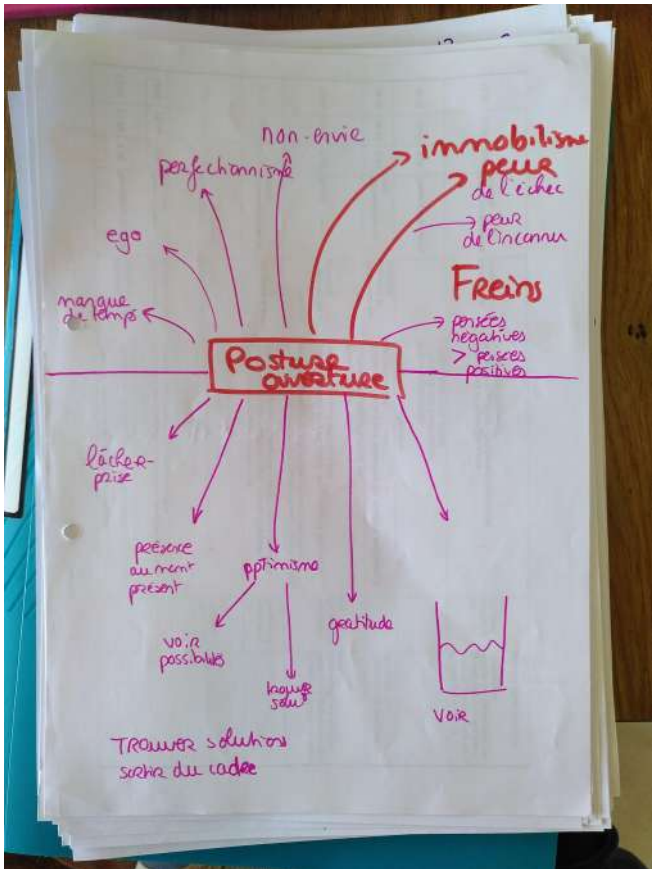 non-envie
perfectionnisme
ego
manque
de temps
immobilisme
peur
de l'échec
peur
de l'inconnu
Freins
pensées
négatives
> pensées
positives
Posture
ouverture
lâcher-
prise
présence
au momt
présent
optimisme
voir
possibilités
trouver
solu°
gratitude
voir
TROUVER solutions
sortir du cadre